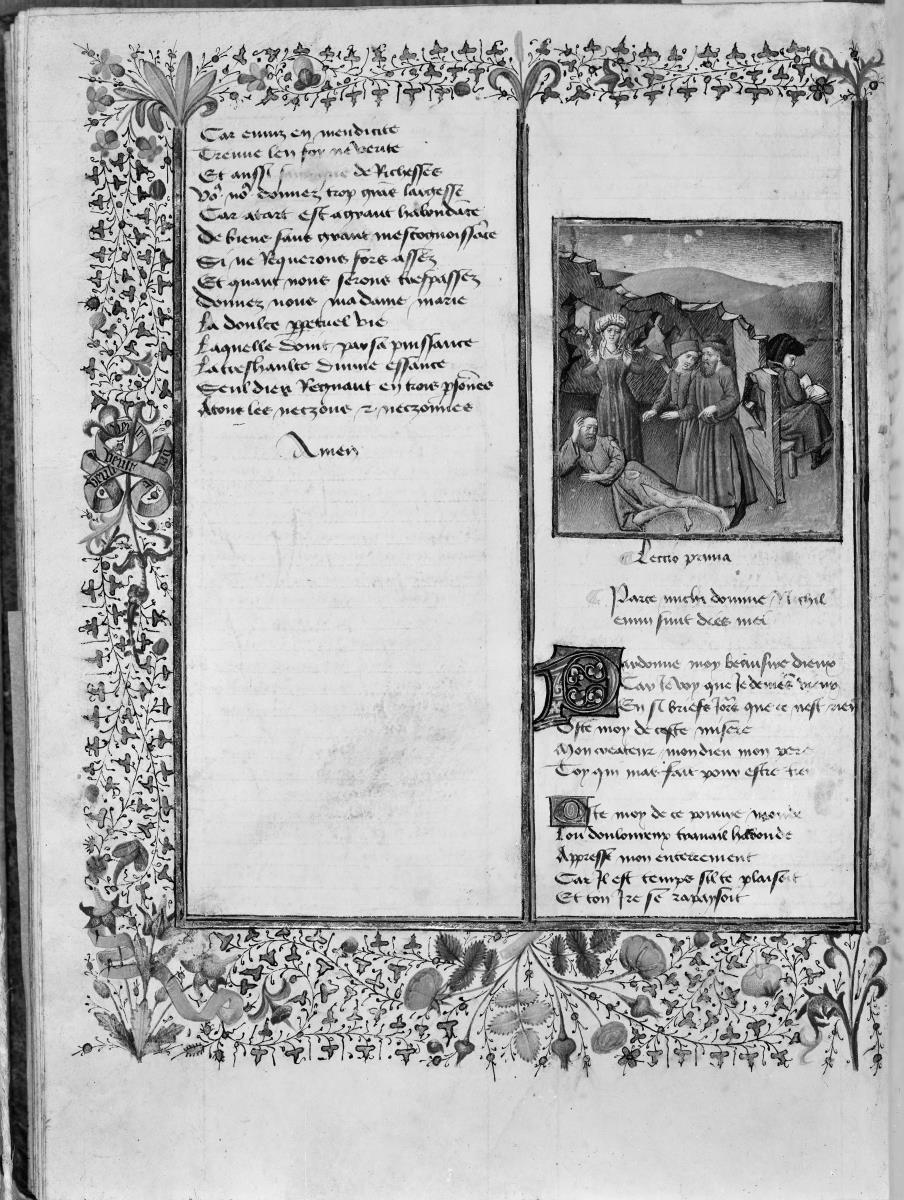 Car enuiz en mendicite
Treuue len foy ne verite
Et aussi de Richesses
Vo9 no9 donnez trop gras largesse
Car atart est a grant habondāce
De biens sans grant mescognoissāce
Si ne Requerons fors assez
Et quant nous serons trespassez
Donnez nous ma dame marie
La doulce ppetuel vie
Laquelle doint par sa puissance
La treshaulte diuine essance
Seul dieu Regnant en trois psōnes
A tous les neczons & neczonnes
Amen
Lectio prima
Parce michi domine Nichil
enim sunt dies mei
Pardonne moy beausire dieux
Car Je voy que Je deuiēs vieux
En si briefs Jors que ce nest rien
Oste moy de ceste misere
Mon createur mon dieu mon pere
Toy qui mas fait pour estre tien
Oste moy de ce poure monde
Lou douloureux trauail habonde
Appresse mon enterrement
Car Il est temps sil te plaisoit
Et ton Ire se rapaysoit